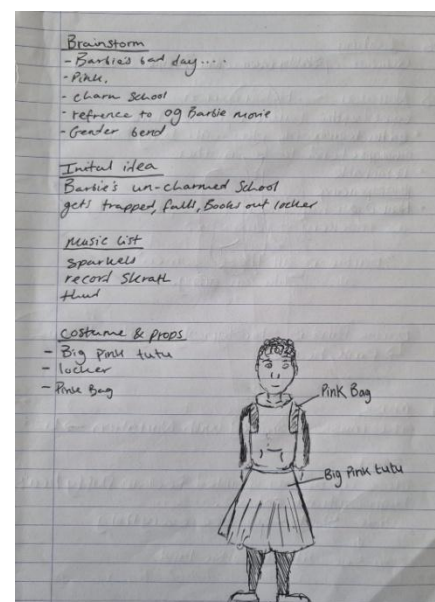 Brainstorm
- Barbie's bad day....
- Pink.
- Charm School
- refrence to og Barbie movie
- Gender bend
Inital idea
Barbie's un-charmed School
gets trapped, falls, Books out locker
Music list
Sparkels
record Skrath
thud
Costume & props
- Big pink tutu
- locker
- Pink Bag
Pink Bag
Big Pink tutu